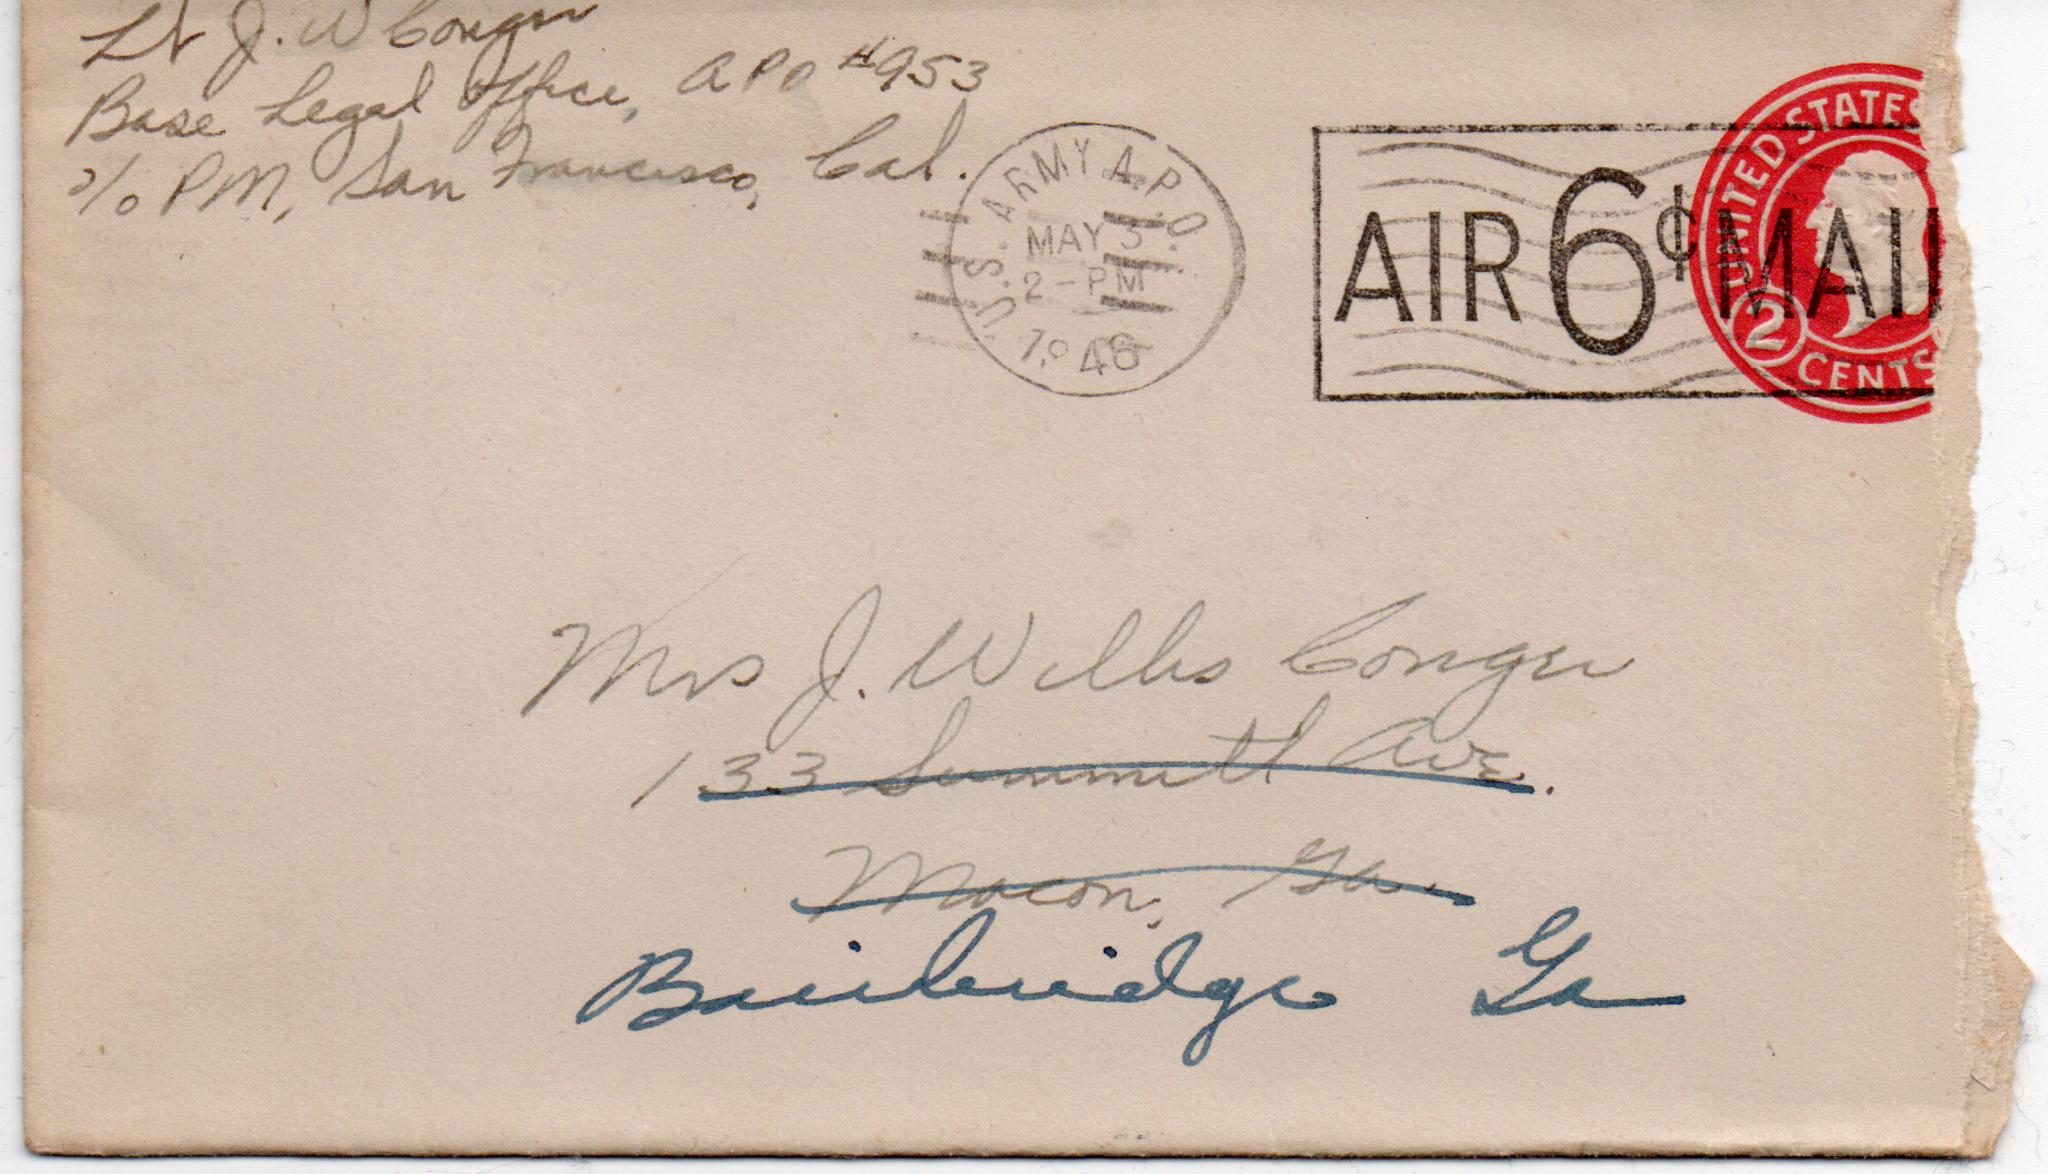 Lt J. W Conger
Base Legal Office, APO #953
c/o PM, San Francisco, Cal.
U.S. ARMY A.P.O.
MAY 3
2-PM
46
AIR 6¢ MAIL
UNITED STATES
2
CENTS
Mrs J. Willis Conger
133 Summitt Ave.
Macon, Ga.
Bainbridge Ga